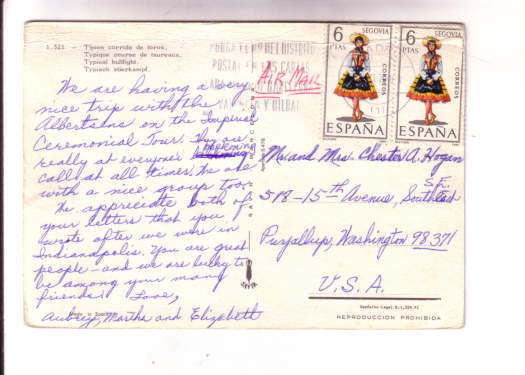 1.521 - Típica corrida de toros.
Typique course de taureaux.
Typical bullfight.
Typisch stierkampf.
We are having a very
nice trip with the
Albertsons on the Imperial
Ceremonial Tour. They are
really at everyone's beckoning
call at all times. We are
with a nice group too.
We appreciate both of
your letters that you
wrote after we were in
Indianapolis. You are great
people - and we are lucky to
be among your many
friends! Love,
Aubrey, Martha and Elizabeth
Made in Spain
DEL DISTRITO
POSTAL EN LAS CARTAS
Y BILBAO
AIR MAIL
6
PTAS
SEGOVIA
CORREOS
ESPAÑA
6
PTAS
SEGOVIA
CORREOS
ESPAÑA
Mr. and Mrs. Chester A. Hogan
518-15th Avenue, Southeast
S.E.
Puyallup, Washington 98371
U.S.A.
REPRODUCCION PROHIBIDA